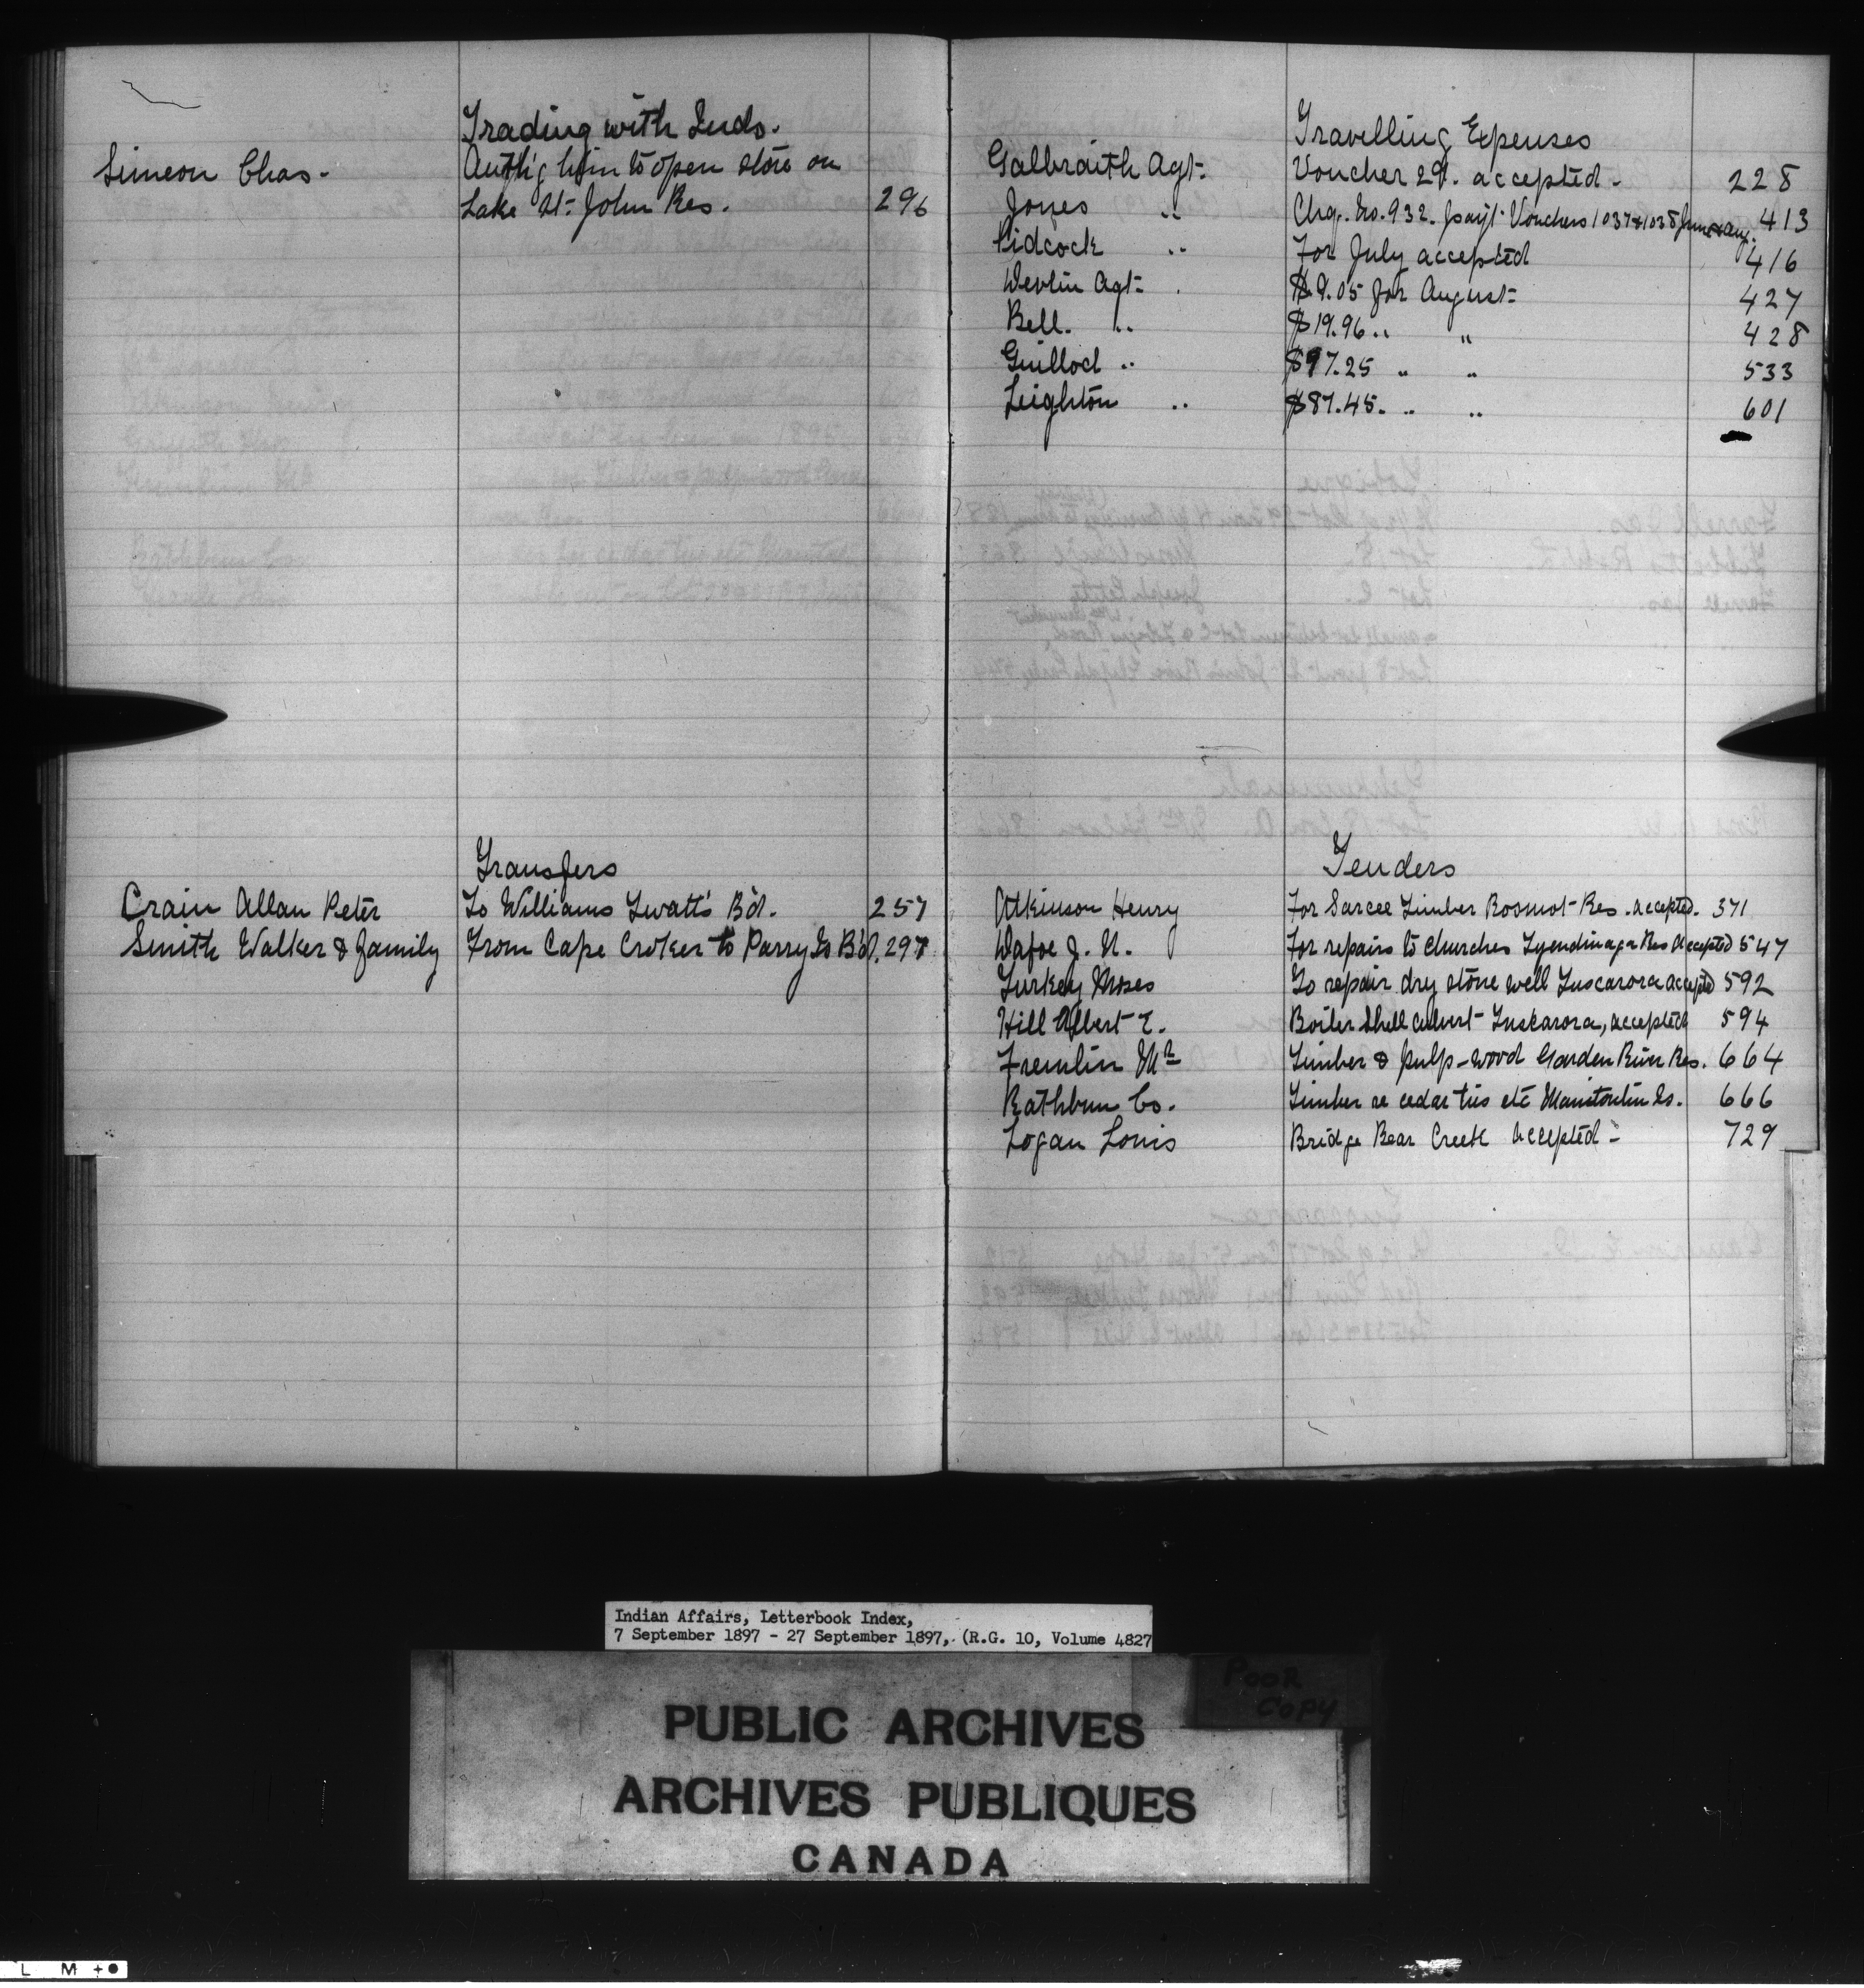 Trading with Inds.
Simeon Chas. Auth'g him to open store on
Lake St. John Res. 296
Transfers
Crain Allan Peter To Williams Treaty Bd. 257
Smith Walker & family From Cape Croker to Parry Is Bd. 297
Travelling Expenses
Galbraith Agt. Voucher 29. accepted. 228
Jones " Chq. No. 932. pay't Vouchers 1037 & 1038 June & Aug. 413
Pidcock " For July accepted 416
Devlin Agt. $9.05 for August 427
Bell. " $19.96 " " 428
Guillod " $97.25 " " 533
Leighton " $87.45. " " 601
Tenders
Atkinson Henry For Sarcee Timber Res. accepted. 371
Dafoe J. N. For repairs to churches Tyendinaga Res accepted 547
Turkey Moses To repair dry stone well Tuscarora accepted 592
Hill Albert E. Boiler Shell culvert Tuskarora, accepted 594
Fremlin Mr Timber & pulp-wood Garden River Res. 664
Rathbun Co. Timber re cedar ties etc Manitoulin Is. 666
Logan Louis Bridge Bear Creek accepted 729
Indian Affairs, Letterbook Index,
7 September 1897 - 27 September 1897, (R.G. 10, Volume 4827
POOR
COPY
PUBLIC ARCHIVES
ARCHIVES PUBLIQUES
CANADA
L M +